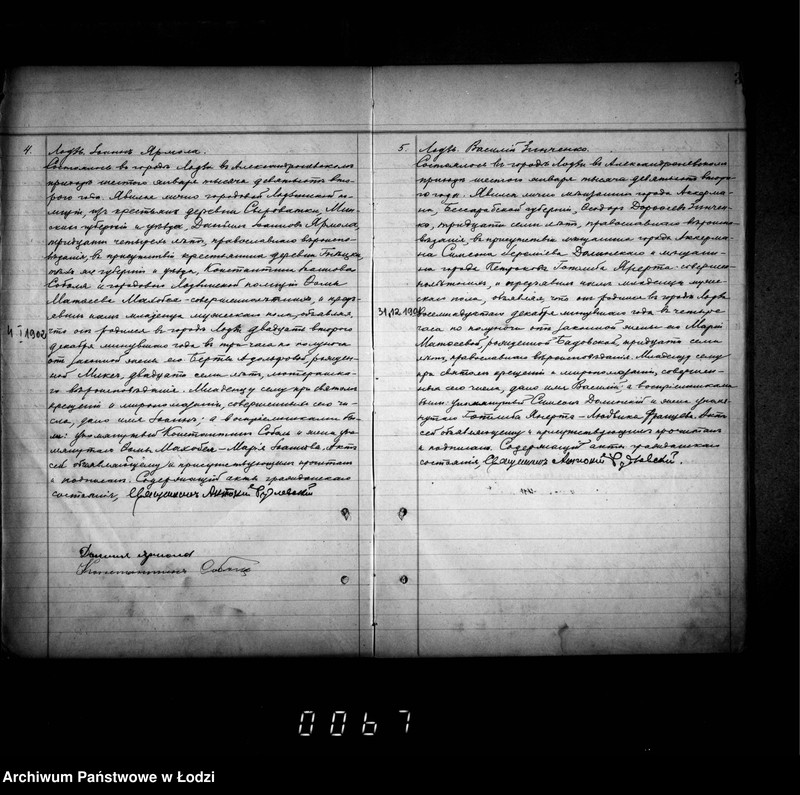 4.
Лодзь. Іоаннъ Ярмола.
Состоялось въ городѣ Лодзи въ Александроневскомъ
приходѣ шестого января тысяча девятьсотъ вто-
рого года. Явился лично городовой Лодзинской по-
лиціи, изъ крестьянъ деревни Сыроватки, Мин-
ской губерніи и уѣзда, Даніилъ Іоанновъ Ярмола,
тридцати четырехъ лѣтъ, православнаго вѣроиспо-
вѣданія, въ присутствіи крестьянина деревни
той же губерніи и уѣзда, Константина
Собаля и городового Лодзинской полиціи Ѳомы
Матвеева совершеннолѣтнихъ, и предъ-
явилъ намъ младенца мужескаго пола, объявляя,
что онъ родился въ городѣ Лодзи двадцать второго
декабря минувшаго года въ три часа по полуночи
отъ законной жены его Берты Адольфовой, рожден-
ной Микса, двадцати семи лѣтъ, лютеранска-
го вѣроисповѣданія. Младенцу сему при святомъ
крещеніи и миропомазаніи, совершенномъ сего чи-
сла, дано имя Іоаннъ; а воспріемниками бы-
ли: упомянутый Константинъ Собаль и жена упо-
мянутаго Ѳомы Марія Іоаннова. Актъ
сей объявляющему и присутствующимъ прочитанъ
и подписанъ. Содержащій акты гражданскаго
состоянія, Священникъ Антоній Рудлевскій
4 I 1902
Даніилъ Ярмола
Константинъ Собаль
5
Лодзь. Василій Зинченко.
Состоялось въ городѣ Лодзи въ Александроневскомъ
приходѣ шестого января тысяча девятьсотъ второ-
го года. Явился лично мѣщанинъ города Аккерма-
на, Бессарабской губерніи, Ѳеодоръ Дороѳеевъ Зинчен-
ко, тридцати семи лѣтъ, православнаго вѣроиспо-
вѣданія, въ присутствіи мѣщанина города Аккерма-
на Симеона Домонского и мѣщани-
на города Петрокова Готлиба совершен-
нолѣтнихъ, и предъявилъ намъ младенца муже-
скаго пола, объявляя, что онъ родился въ городѣ Лодзи
восемнадцатаго декабря минувшаго года въ четыре
часа по полуночи отъ законной жены его Маріи
Матвеевой, рожденной Бадовской, тридцати семи
лѣтъ, православнаго вѣроисповѣданія. Младенцу сему
при святомъ крещеніи и миропомазаніи, совершен-
номъ сего числа, дано имя Василій; а воспріемниками
были: упомянутый Симеонъ Домонской и жена упомя-
нутаго Готлиба Людвика Францева. Актъ
сей объявляющему и присутствующимъ прочитанъ
и подписанъ. Содержащій акты гражданскаго
состоянія, Священникъ Антоній Рудлевскій.
31.12.1901
0067
Archiwum Państwowe w Łodzi